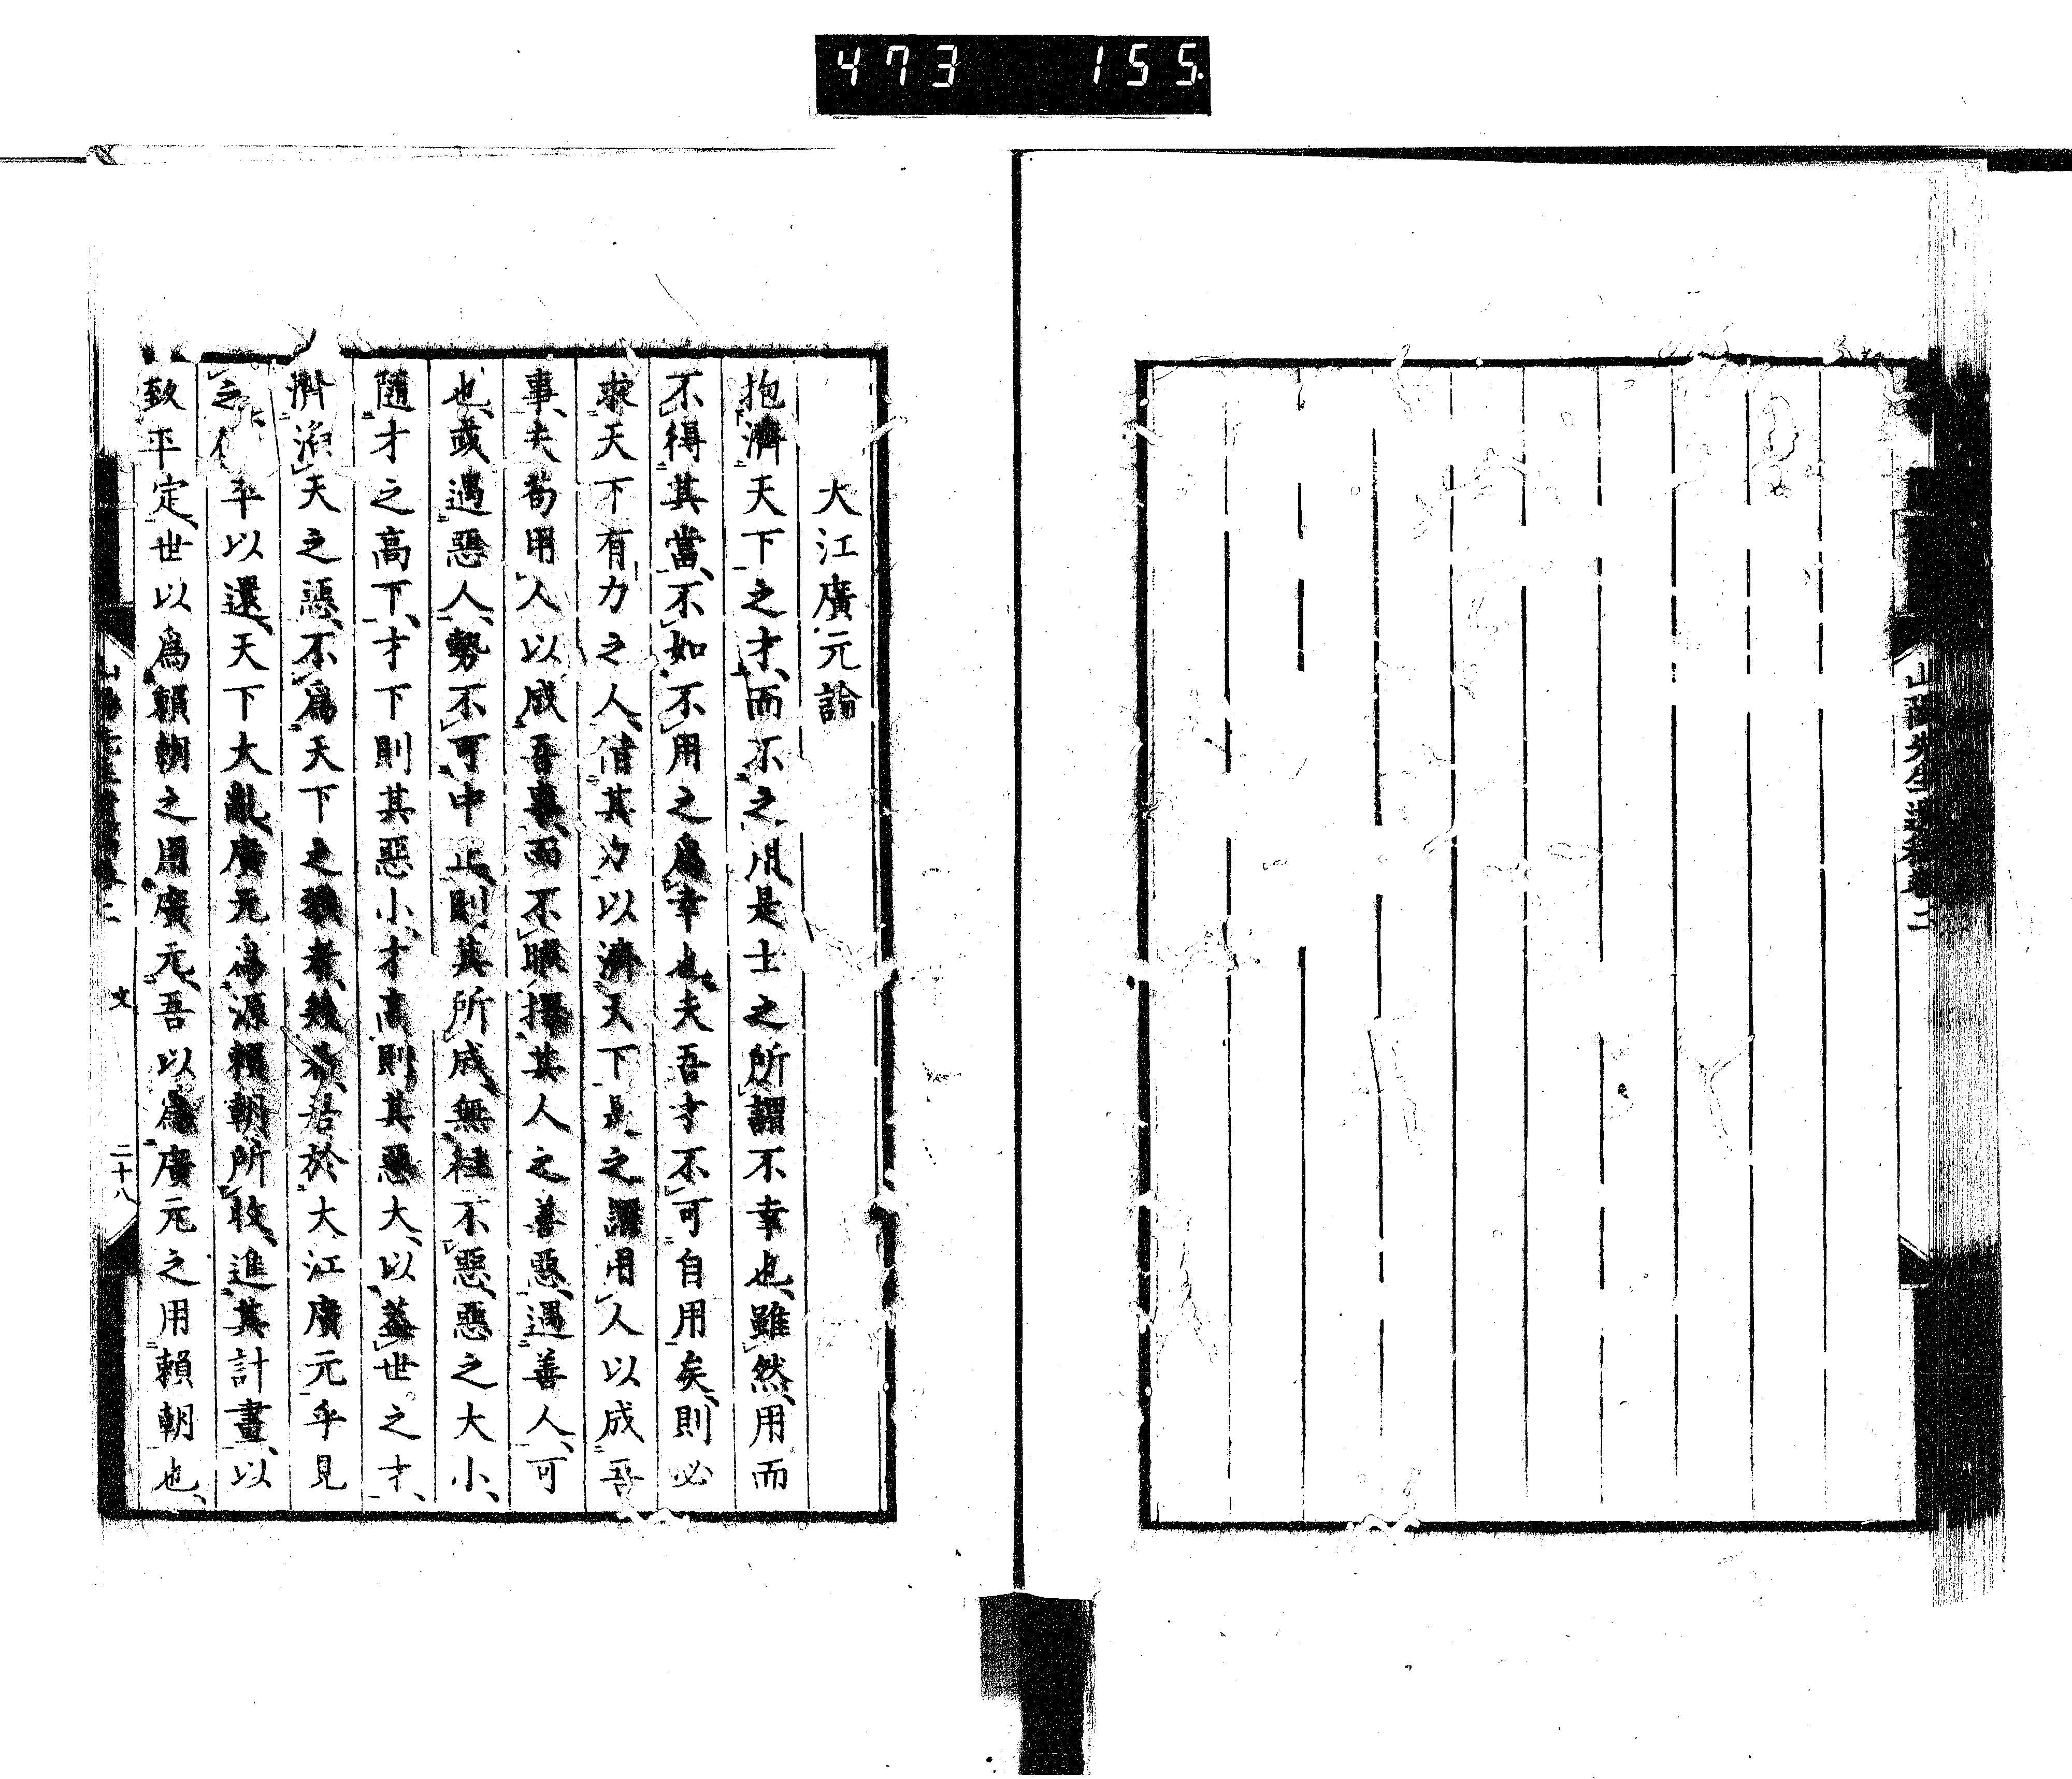 473 155
山陽先生遺稿卷二
大江廣元論
抱濟天下之才、而不之用、是士之所謂不幸也、雖然、用而
不得其當、不如不用之爲幸也、夫吾才不可自用矣、則必
求天下有力之人、借其力以濟天下、是之謂用人以成吾
事、夫苟用人以成吾事、而不暇擇其人之善惡、遇善人、可
也、或遇惡人、勢不可中止、則其所成、無往不惡、惡之大小、
隨才之高下、才下則其惡小、才高則其惡大、以蓋世之才、
濟滔天之惡、不爲天下之 者幾希、若於大江廣元乎見
之、 平以還、天下大亂、廣元爲源賴朝所收、進其計畫、以
致平定、世以爲賴朝之用廣元、吾以爲廣元之用賴朝也、
山陽先生遺稿卷二 文 二十八